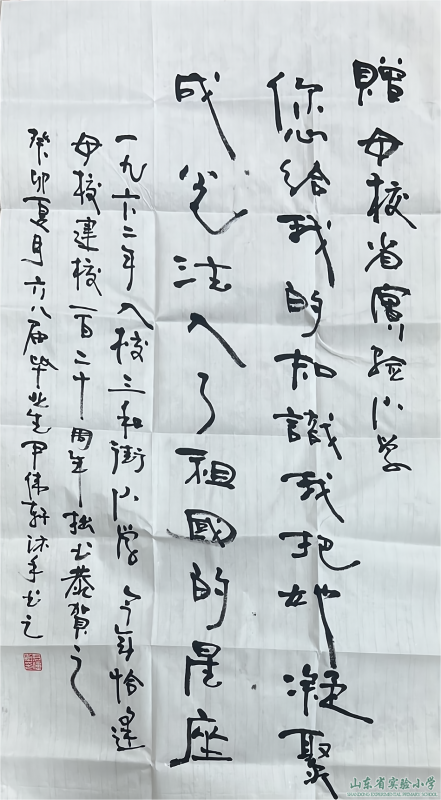 贈母校省實验小学
您给我的知識我把她凝聚
成光注入了祖國的星座
一九六二年入校三和街小学今年恰逢
母校建校一百二十周年拙书恭贺之
癸卯夏月六八届毕业生尹伟轩沐手书之
山东省实验小学
SHANDONG EXPERIMENTAL PRIMARY SCHOOL